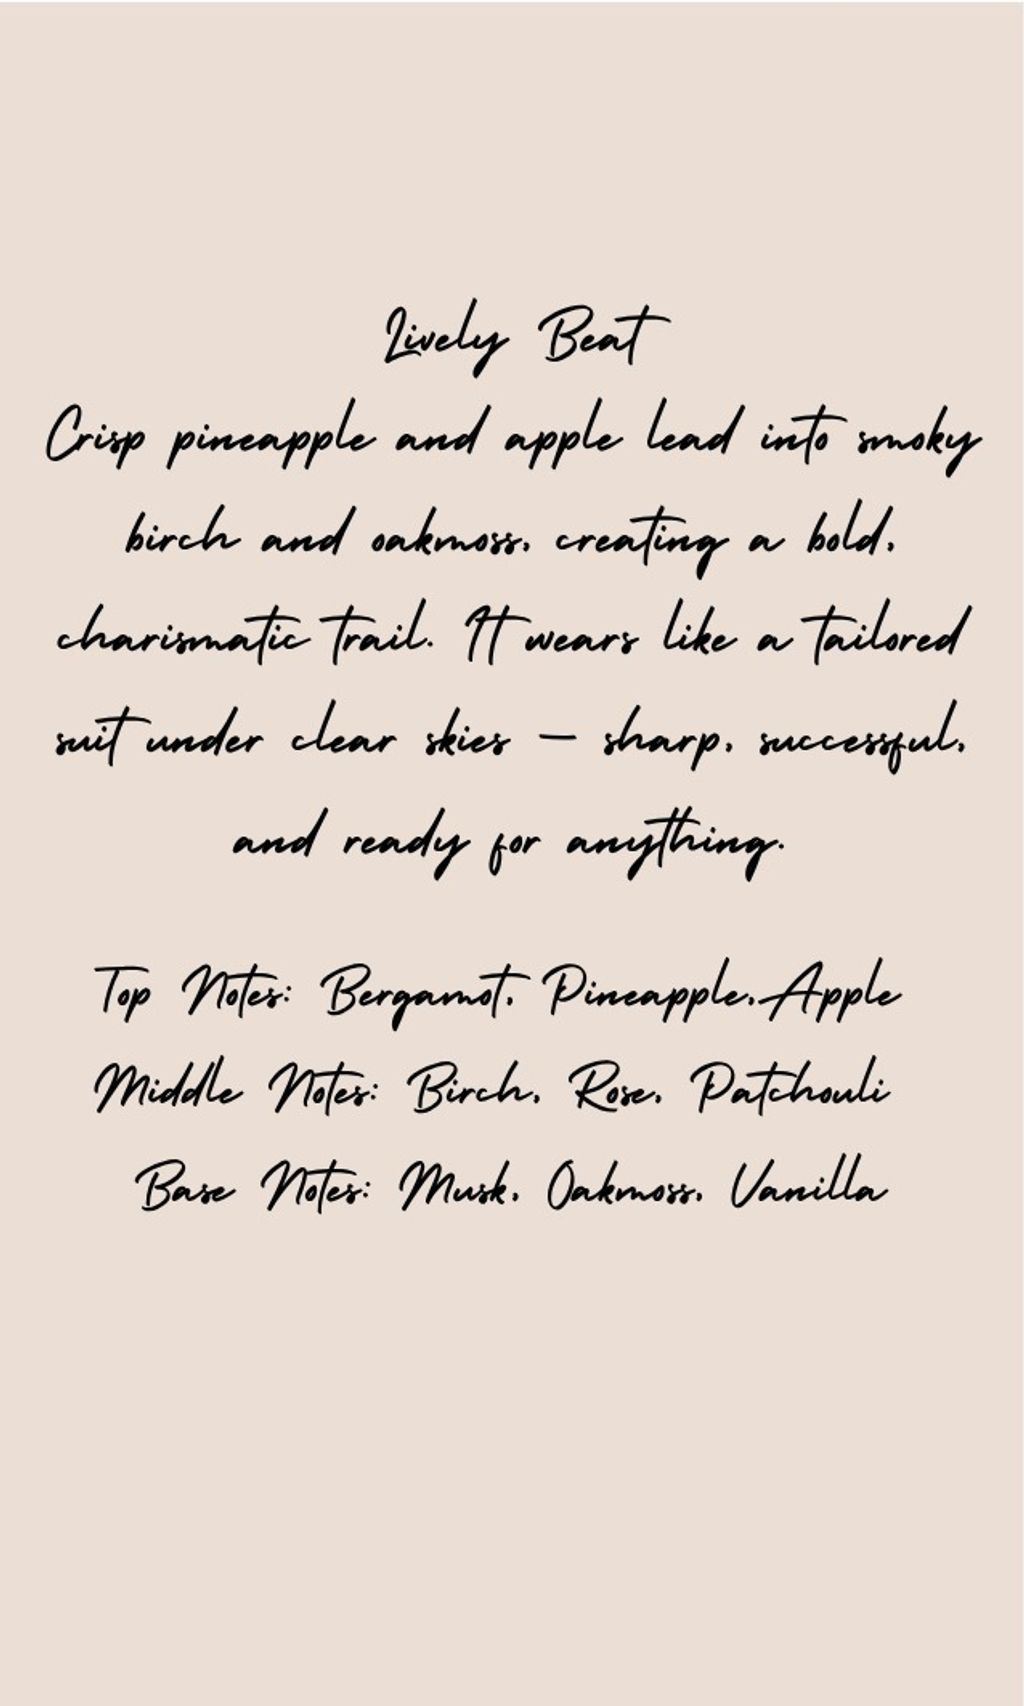 Lively Beat
Crisp pineapple and apple lead into smoky
birch and oakmoss, creating a bold,
charismatic trail. It wears like a tailored
suit under clear skies – sharp, successful,
and ready for anything.
Top Notes: Bergamot, Pineapple, Apple
Middle Notes: Birch, Rose, Patchouli
Base Notes: Musk, Oakmoss, Vanilla